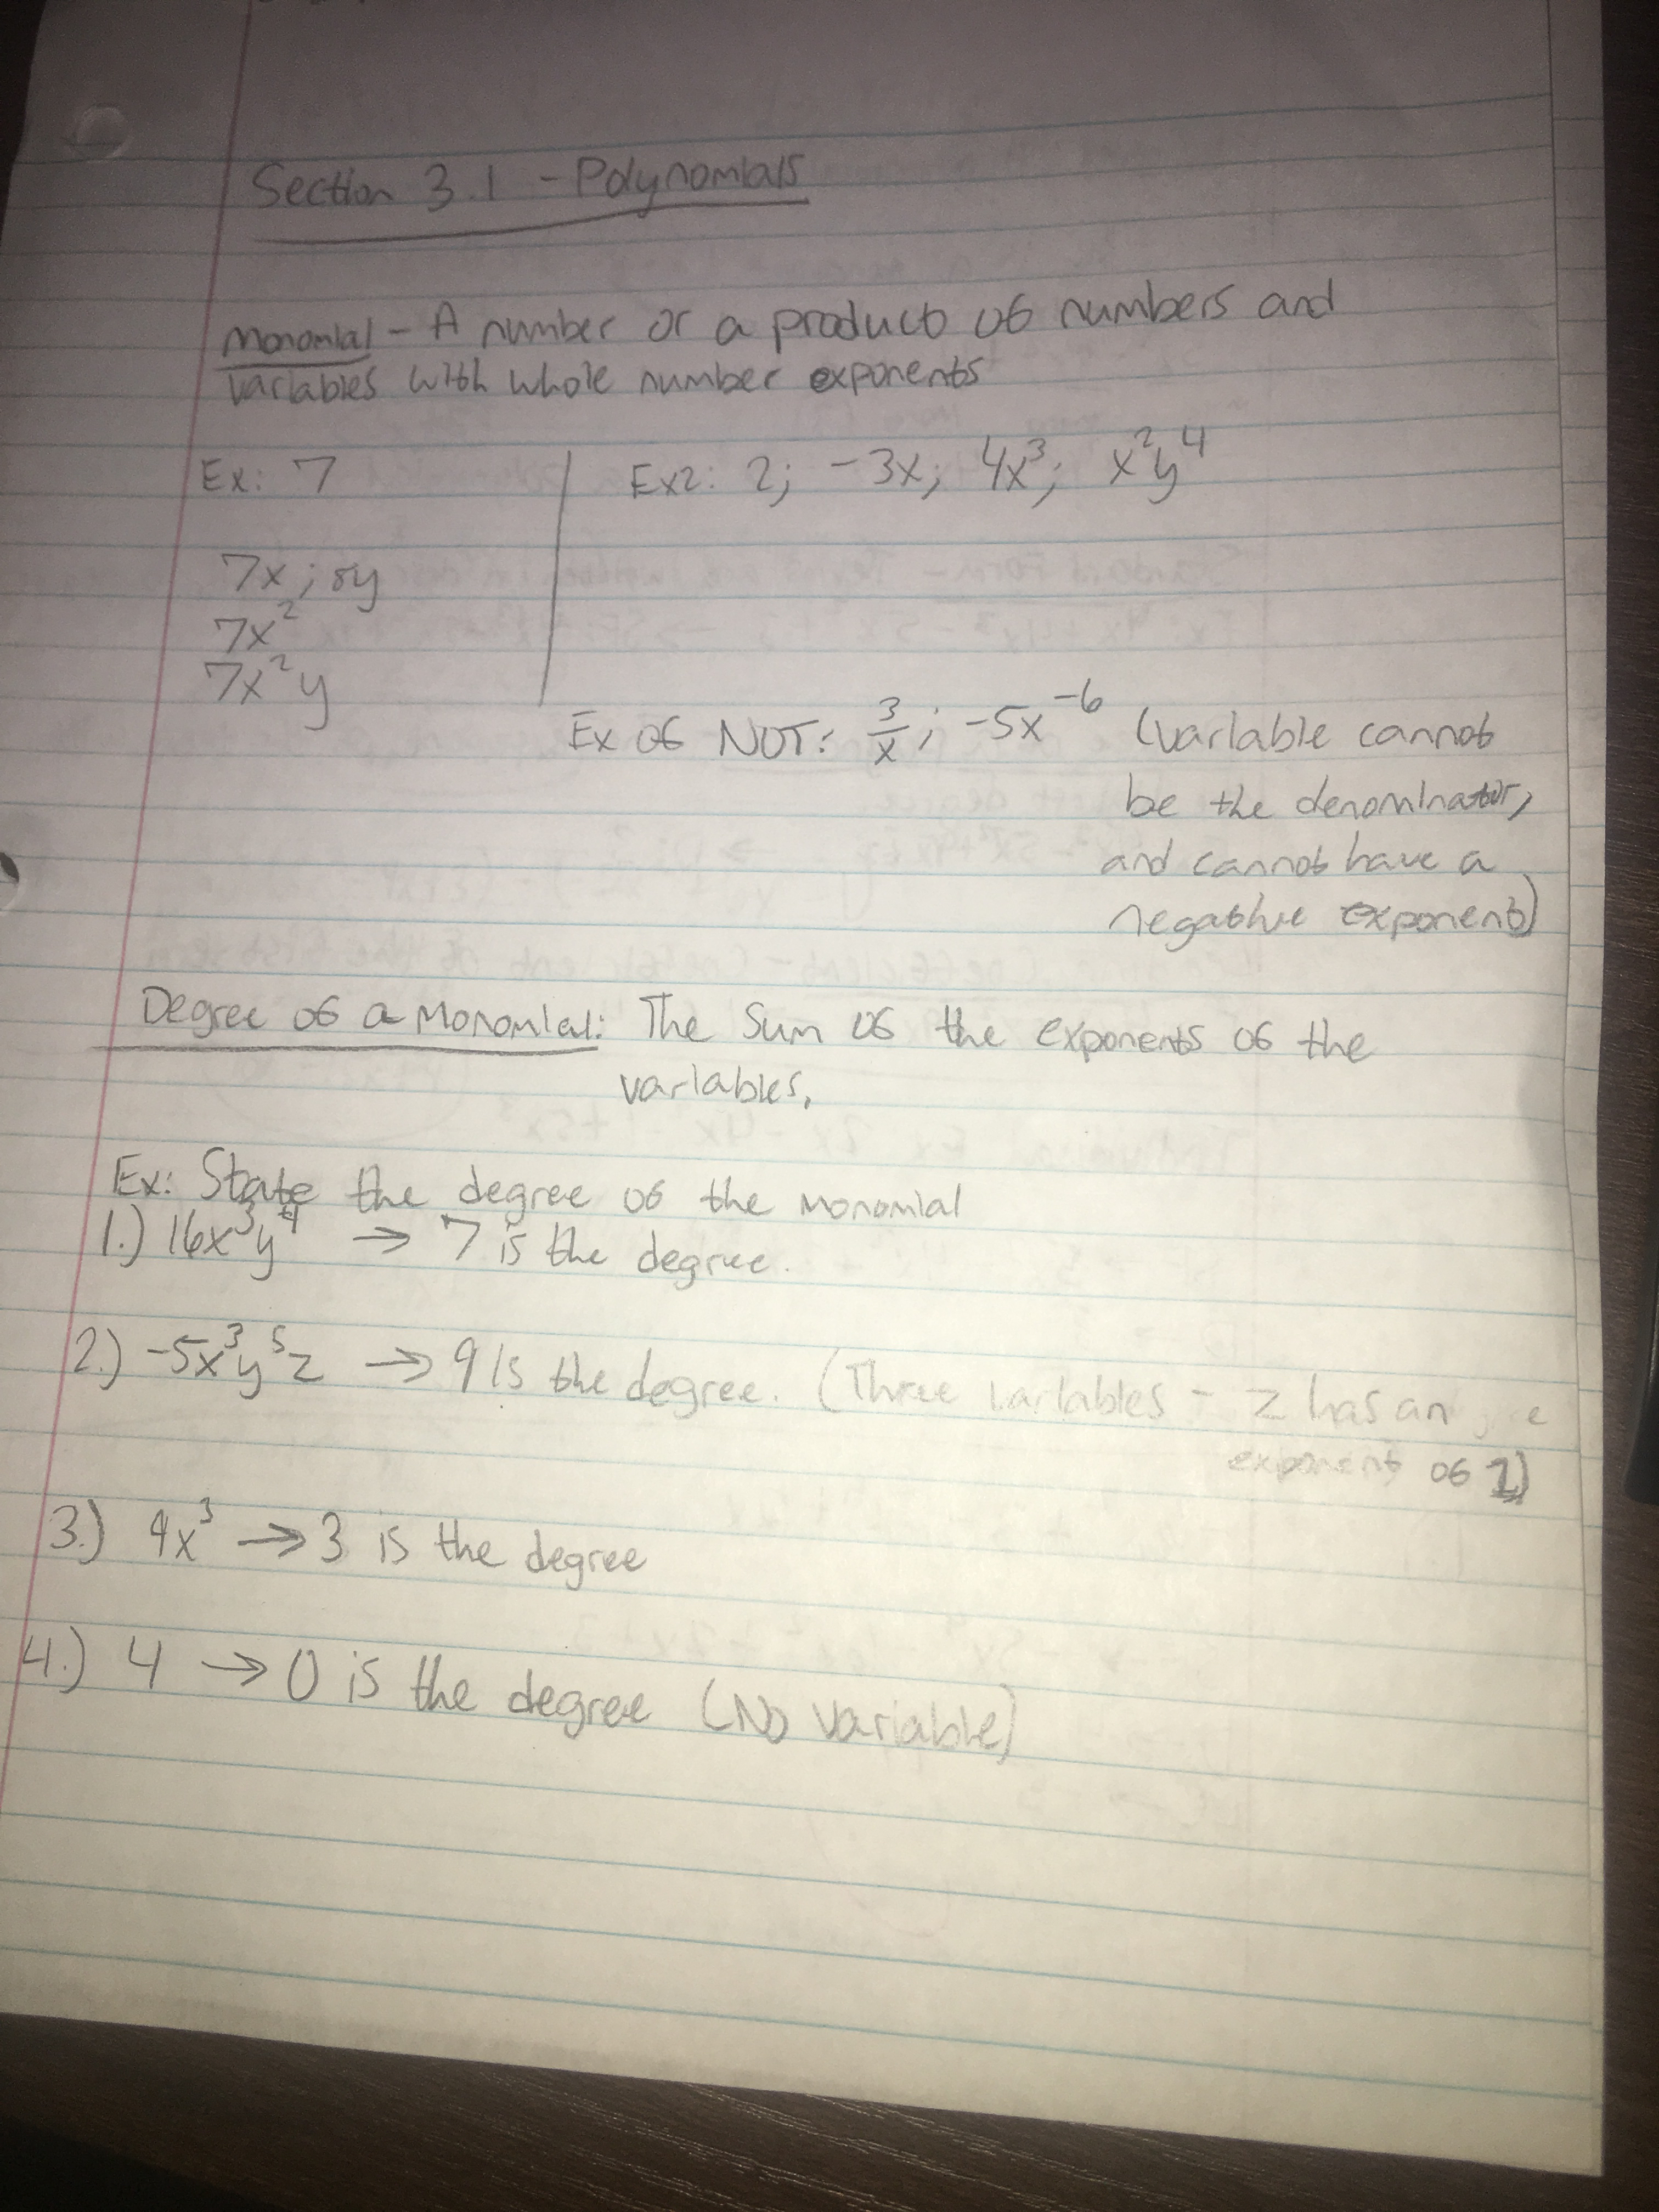 Section 3.1 - Polynomials
Monomial - A number or a product of numbers and
variables with whole number exponents
Ex: 7 | Ex2: 2; -3x; 4x³; x²y⁴
7x; 8y
7x²
7x²y
Ex of NOT: 3/x; -5x⁻⁶ (variable cannot
be the denominator,
and cannot have a
negative exponent)
Degree of a Monomial: The Sum of the exponents of the
variables.
Ex: State the degree of the monomial
1.) 16x³y⁴ → 7 is the degree.
2.) -5x³y⁵z → 9 is the degree. (Three variables - z has an
exponent of 1)
3.) 4x³ → 3 is the degree
4.) 4 → 0 is the degree (No variable)